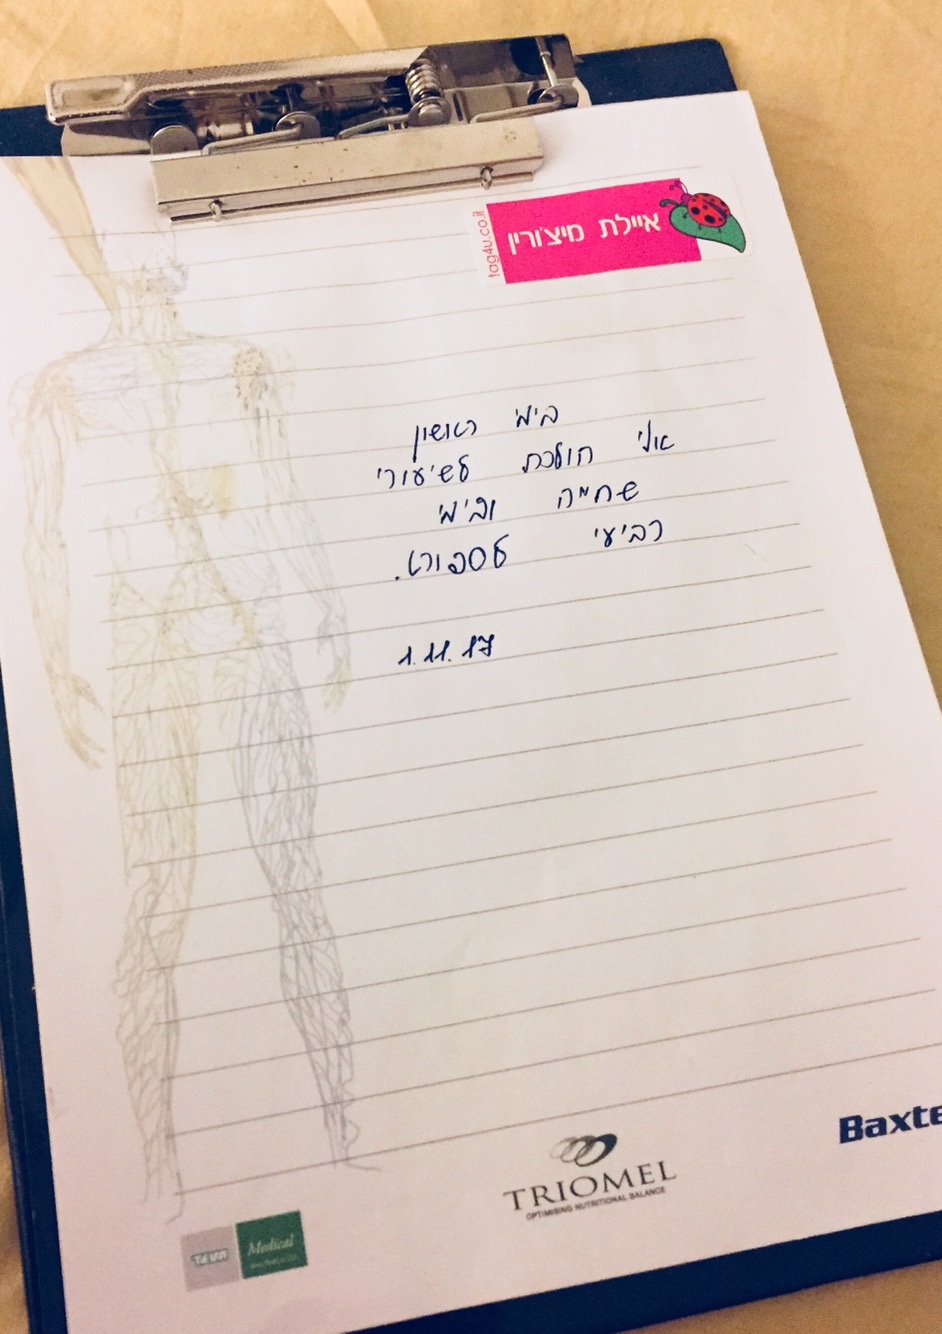 איילת מיצ'ורין
tag4u.co.il
בימי ראשון
אני הולכת לשיעורי
שחיה ובימי
רביעי לספורט.
1.11.17
Baxte
TRIOMEL
OPTIMISING NUTRITIONAL BALANCE
Medical